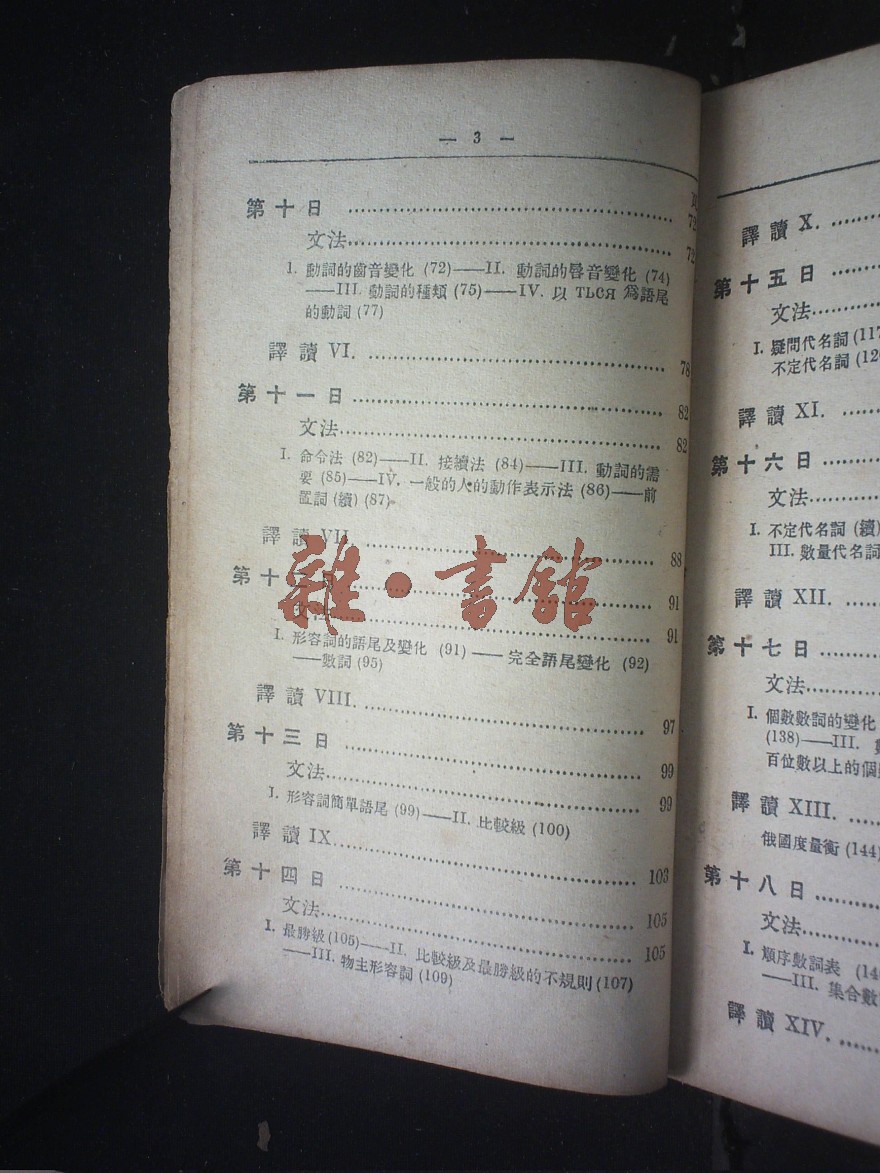 — 3 —
第十日 ........ 72
文法 ........ 72
I. 動詞的齒音變化 (72)——II. 動詞的唇音變化 (74)
——III. 動詞的種類 (75)——IV. 以 ТЬСЯ 爲語尾
的動詞 (77)
譯讀 VI. ........ 78
第十一日 ........ 82
文法 ........ 82
I. 命令法 (82)——II. 接續法 (84)——III. 動詞的需
要 (85)——IV. 一般的人的動作表示法 (86)——前
置詞 (續) (87)
譯讀 VII. ........ 88
第十二日 ........ 91
文法 ........ 91
雜·書館
I. 形容詞的語尾及變化 (91)——完全語尾變化 (92)
——數詞 (95)
譯讀 VIII. ........ 97
第十三日 ........ 99
文法 ........ 99
I. 形容詞簡單語尾 (99)——II. 比較級 (100)
譯讀 IX. ........ 103
第十四日 ........ 105
文法 ........ 105
I. 最勝級 (105)——II. 比較級及最勝級的不規則 (107)
——III. 物主形容詞 (109)
譯讀 X. ........
第十五日 ........
文法 ........
I. 疑問代名詞 (117
不定代名詞 (12
譯讀 XI. ........
第十六日 ........
文法 ........
I. 不定代名詞 (續)
III. 數量代名詞
譯讀 XII. ........
第十七日 ........
文法 ........
I. 個數數詞的變化
(138)——III.
百位數以上的個
譯讀 XIII. ........
俄國度量衡 (144)
第十八日 ........
文法 ........
I. 順序數詞表 (14
——III. 集合數
譯讀 XIV. ........